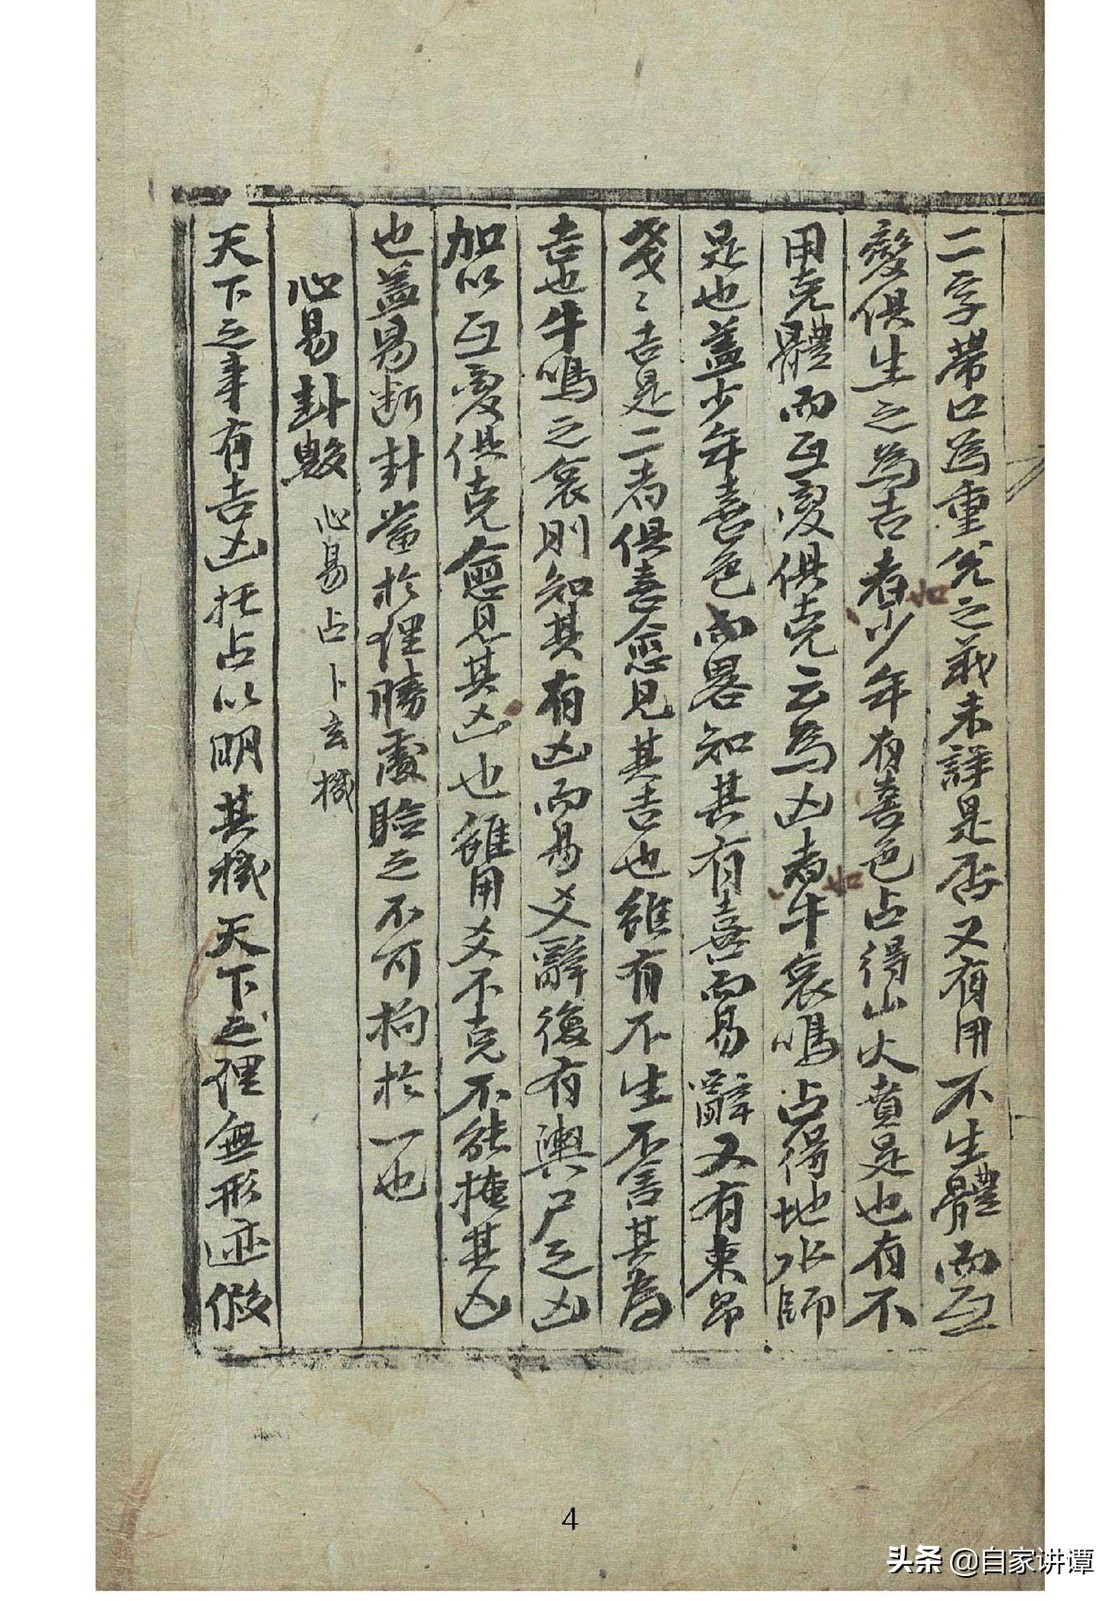 二字帶口為重兌之義未詳是否又有用不生體而互
變俱生之為吉者如少年有喜色占得山火賁是也有不
用克體而互變俱克云為凶者如牛哀鳴占得地水師
是也蓋少年喜色而畧知其有喜而易辭又有束帛
戔〻吉是二者俱喜愈見其吉也雖有不生不害其為
吉也牛鳴之哀則知其有凶而易爻辭復有輿尸之凶
加以互變俱克愈見其凶也雖用爻不克不能掩其凶
也蓋易斷卦當於理勝處驗之不可拘於一也
心易卦數 心易占卜玄機
天下之事有吉凶托占以明其機天下之理無形迹假
4
头条 @自家讲谭